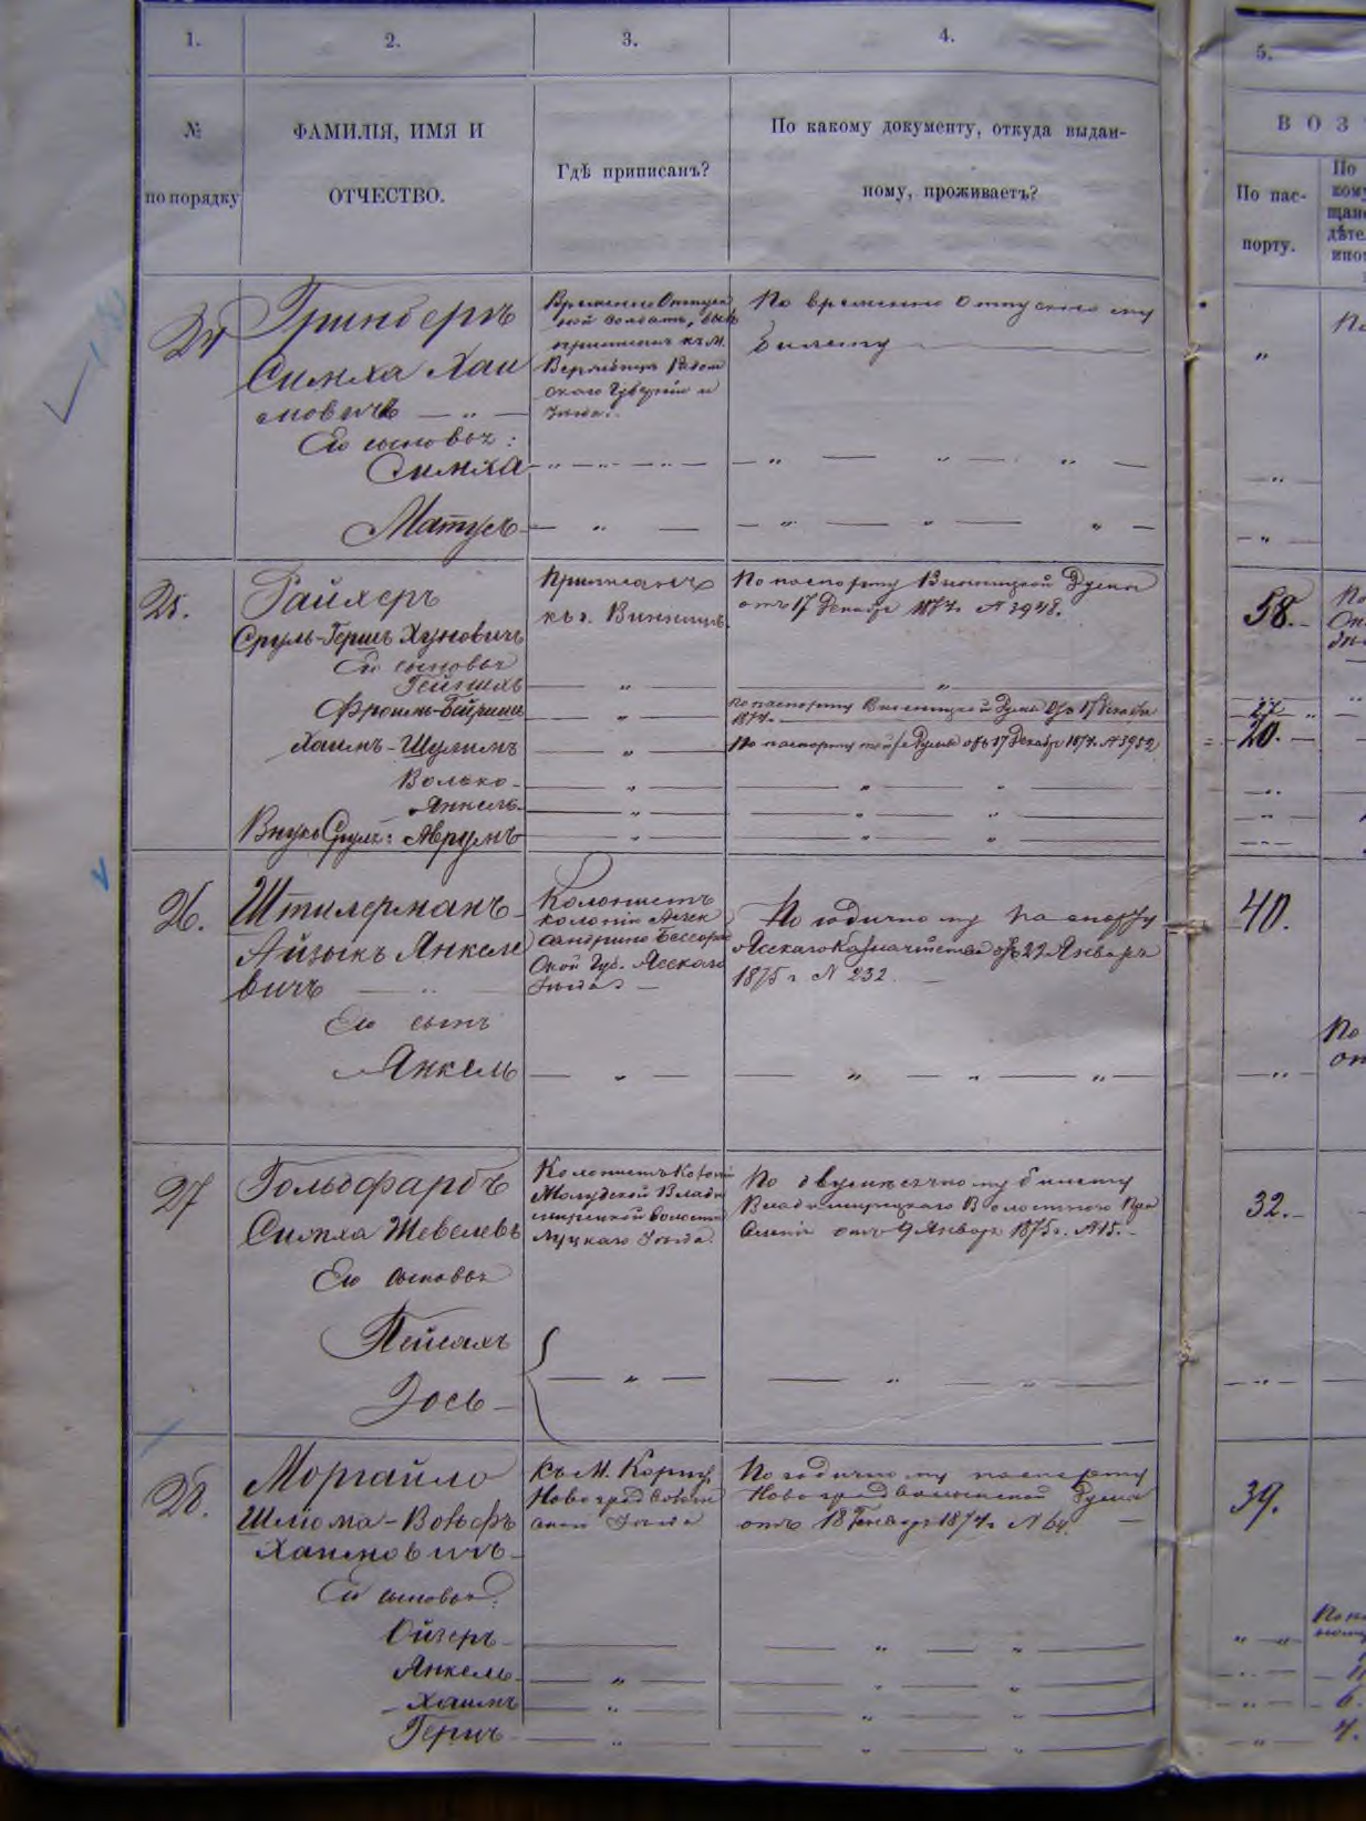 1.
2.
3.
4.
5.
№
по порядку
ФАМИЛІЯ, ИМЯ И
ОТЧЕСТВО.
Гдѣ приписанъ?
По какому документу, откуда выдан-
ному, проживаетъ?
ВОЗ
По пас-
порту.
По
24
Гринберъ
Симха Хаи
мовичъ — „ —
Его сыновья:
Симха
Матусъ
Временно Отпуск
ной солдатъ, былъ
приписанъ къ м.
По временно отпускному
билету
25.
Райхеръ
Сруль-Гершъ Хуновичъ
Его сыновья
Фроимъ
Хаимъ-Шулимъ
Волько
Янкель
Внукъ Сруля: Аврумъ
Приписанъ
къ г. Винницѣ.
По паспорту Винницкой Думы
отъ 17 Декабр 1874 г. № 3948.
По паспорту Винницкой Думы отъ 17 Декабря
1874 г.
По паспорту той же Думы отъ 17 Декабр 1874 г. № 3952
58.
27
20.
26.
Штилерманъ
Айзыкъ Янкеле
вичъ — „ —
Его сынъ
Янкель
Колонистъ
колоніи Алек
сандрино Бессораб
ской Губ. Ясскаго
Уѣзда
По годичному паспорту
Ясскаго Казначейства отъ 22 Января
1875 г. № 232.
40.
27
Гольдфарбъ
Симха Шевелевъ
Его сыновья
Пейсахъ
Іось
Колонистъ Колоніи
Влади
мирецкой волости
Луцкаго Уѣзда.
По двумѣсячному билету
Владимирецкаго Волостного Прав
ленія отъ 9 Января 1875 г. № 15.
32.
28.
Моргайло
Шліома-Вольфъ
Хаимовичъ
Его сыновья:
Ойзеръ
Янкель
Хаимъ
Гершъ
Къ М. Корцу
Новоградволын
скаго Уѣзда
По годичному паспорту
Новоградволынской Думы
отъ 18 Генваря 1874 г. № 64.
39.
6.
4.